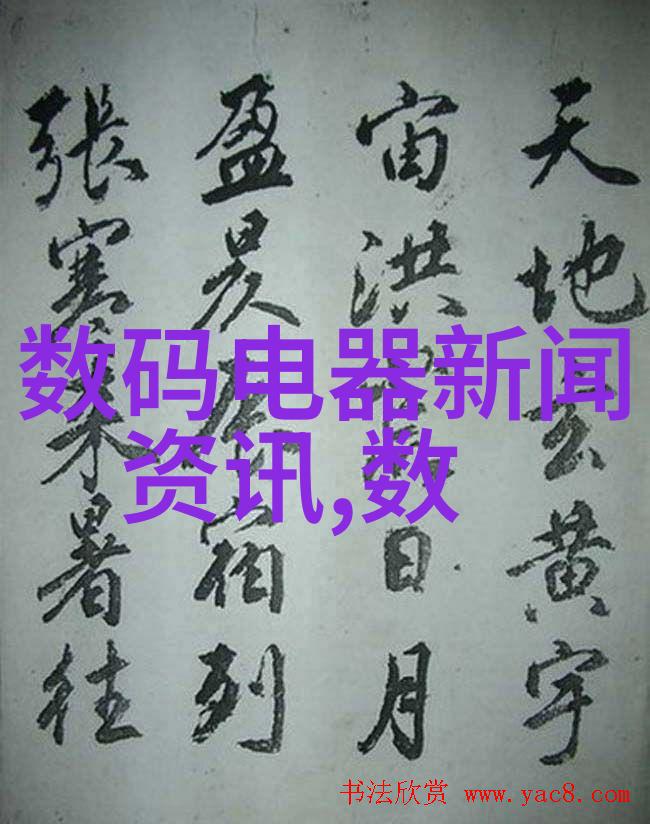 天地玄黄宇
宙洪日月
盈昃辰宿列
張寒来暑往
数码电器新闻
资讯,数
书法欣赏 www.yac8.com